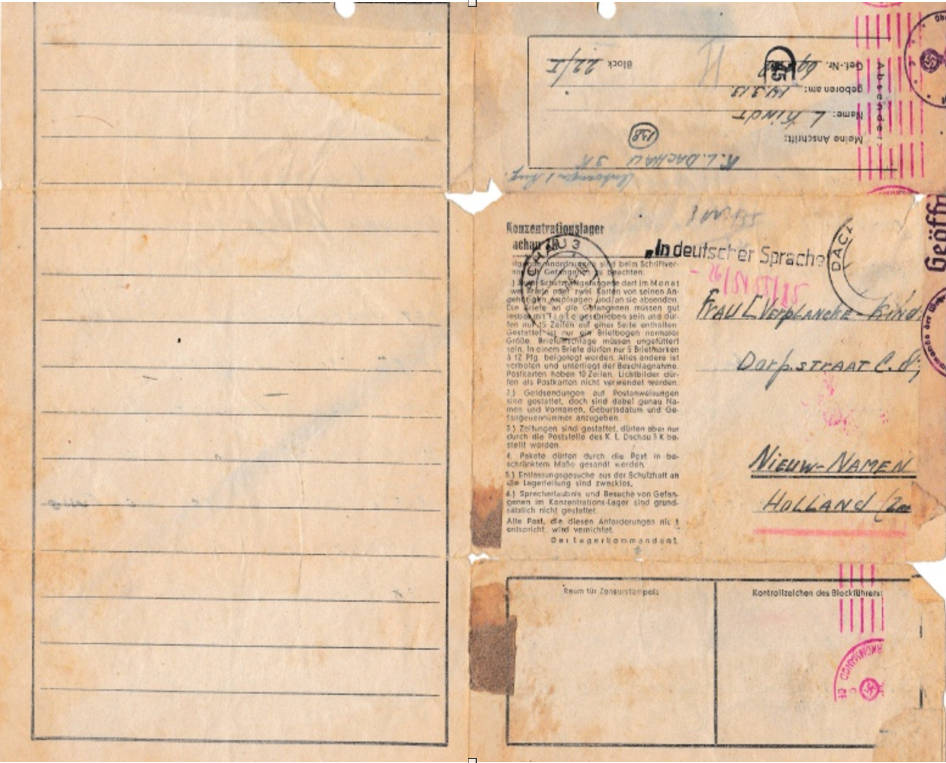 Absender:
Meine Anschrift:
K.L. DACHAU 3K
Name: L KINDT
geboren am: 14.3.13
Gef.-Nr.
Block 22/I
138
Konzentrationslager
achau
"In deutscher Sprache
SCHAU 3
DAC
Geöff
gehörigen empfangen und an sie absenden.
Die Briefe an die Gefangenen müssen gut
lesbar mit geschrieben sein und dür-
fen nur 15 Zeilen auf einer Seite enthalten.
Gestattet ist nur ein Briefbogen normaler
Größe. Briefumschläge müssen ungefüttert
sein. In einem Briefe dürfen nur 5 Briefmarken
à 12 Pfg. beigelegt werden. Alles andere ist
verboten und unterliegt der Beschlagnahme.
Postkarten haben 10 Zeilen. Lichtbilder dür-
fen als Postkarten nicht verwendet werden.
2.) Geldsendungen auf Postanweisungen
sind gestattet, doch sind dabei genau Na-
men und Vornamen, Geburtsdatum und Ge-
fangenennummer anzugeben.
3.) Zeitungen sind gestattet, dürfen aber nur
durch die Poststelle des K. L. Dachau 3 K be-
stellt werden.
4. Pakete dürfen durch die Post in be-
schränktem Maße gesandt werden.
5.) Entlassungsgesuche aus der Schutzhaft an
die Lagerleitung sind zwecklos.
6.) Sprecherlaubnis und Besuche von Gefan-
genen im Konzentrations-Lager sind grund-
sätzlich nicht gestattet.
Alle Post, die diesen Anforderungen nic t
entspricht, wird vernichtet.
Der Lagerkommandant.
FRAU L. VERPLANCKE-KIND
Dorp.STRAAT C.
NIEUW-NAMEN
HOLLAND
Raum für Zensurstempels
Kontrollzeichen des Blockführers